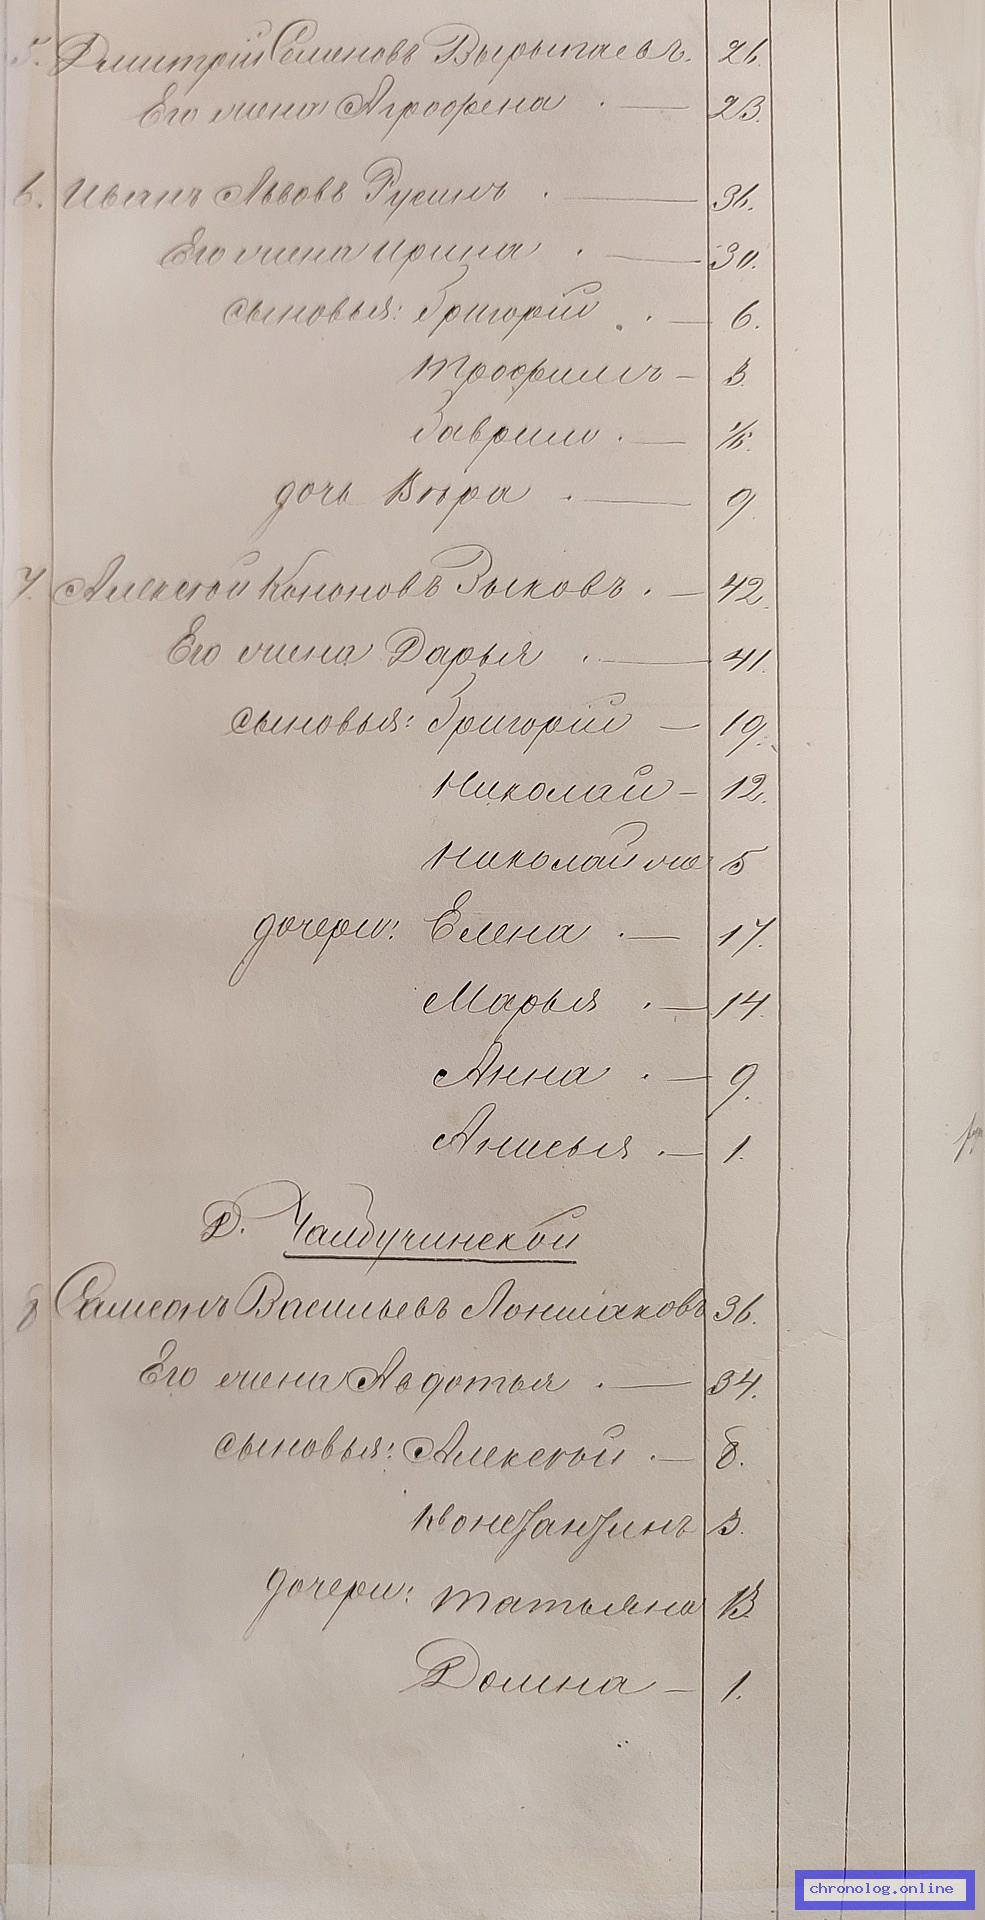 5. Дмитрій Семеновъ Вырыпаевъ. 26.
Его жена Агрофена . — 23.
6. Иванъ Львовъ Русинъ . — 36.
Его жена Ирина . — 30.
сыновья: Григорій . — 6.
Трофимъ — 3.
Гаврило . —
дочь Вѣра . — 9.
7. Алексѣй Кононовъ Зыковъ . — 42.
Его жена Дарья . — 41.
сыновья: Григорій — 19.
Николай — 12.
Николай же 5
дочери: Елена . — 17.
Марья . — 14.
Анна . — 9.
Анисья . — 1.
Д. Чалбучинской
8 Самсонъ Васильевъ Лоншаковъ 36.
Его жена Авдотья . — 34.
сыновья: Алексѣй . — 8.
Константинъ 3.
дочери: Татьяна 13
Домна — 1.
chronolog.online